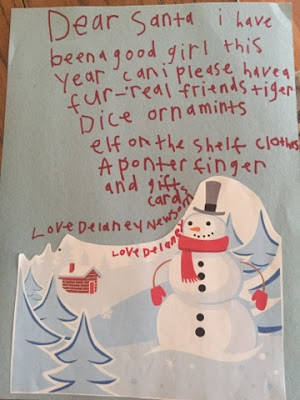 Dear Santa i have
been a good girl this
year can i please have a
fur-real friends tiger
Dice ornamints
elf on the shelf clothes
A ponter finger
and gifts
cards
Love Delaney Newsom
LOVE Delaney